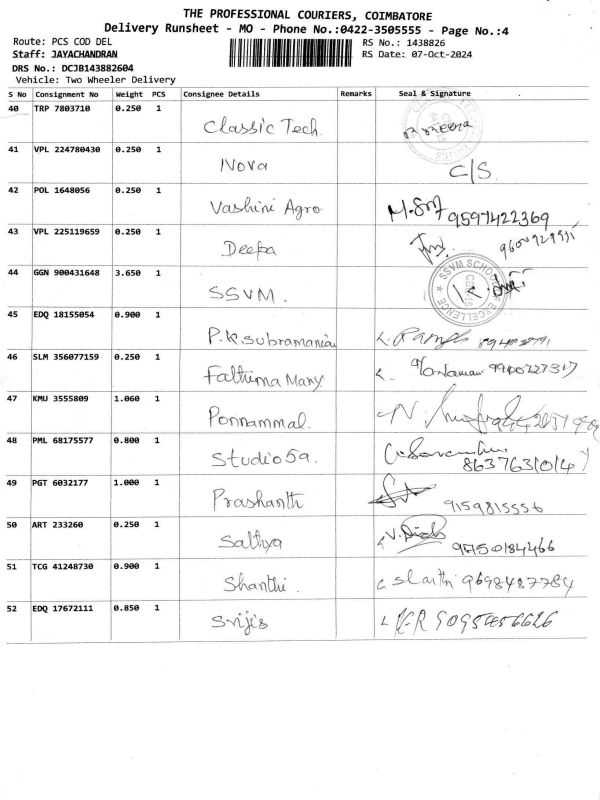 THE PROFESSIONAL COURIERS, COIMBATORE
Delivery Runsheet - MO - Phone No.:0422-3505555 - Page No.:4
Route: PCS COD DEL
RS No.: 1438826
Staff: JAYACHANDRAN
RS Date: 07-Oct-2024
DRS No.: DCJB143882604
Vehicle: Two Wheeler Delivery
S No Consignment No Weight PCS Consignee Details Remarks Seal & Signature
40 TRP 7803710 0.250 1 Classic Tech. Meena
41 VPL 224780430 0.250 1 Nova C/S.
42 POL 1648056 0.250 1 Vashini Agro 9597422369
43 VPL 225119659 0.250 1 Deepa
44 GGN 900431648 3.650 1 SSVM. SSVM SCHOOL EXCELLENCE
45 EDQ 18155054 0.900 1 P.K.Subramanian
46 SLM 356077159 0.250 1 Fathima Mary
47 KMU 3555809 1.060 1 Ponnammal.
48 PML 68175577 0.800 1 Studio59. 8637631014
49 PGT 6032177 1.000 1 Prashanth 9159815556
50 ART 233260 0.250 1 Sathya 9750184466
51 TCG 41248730 0.900 1 Shanthi. 9698487784
52 EDQ 17672111 0.850 1 Srijis